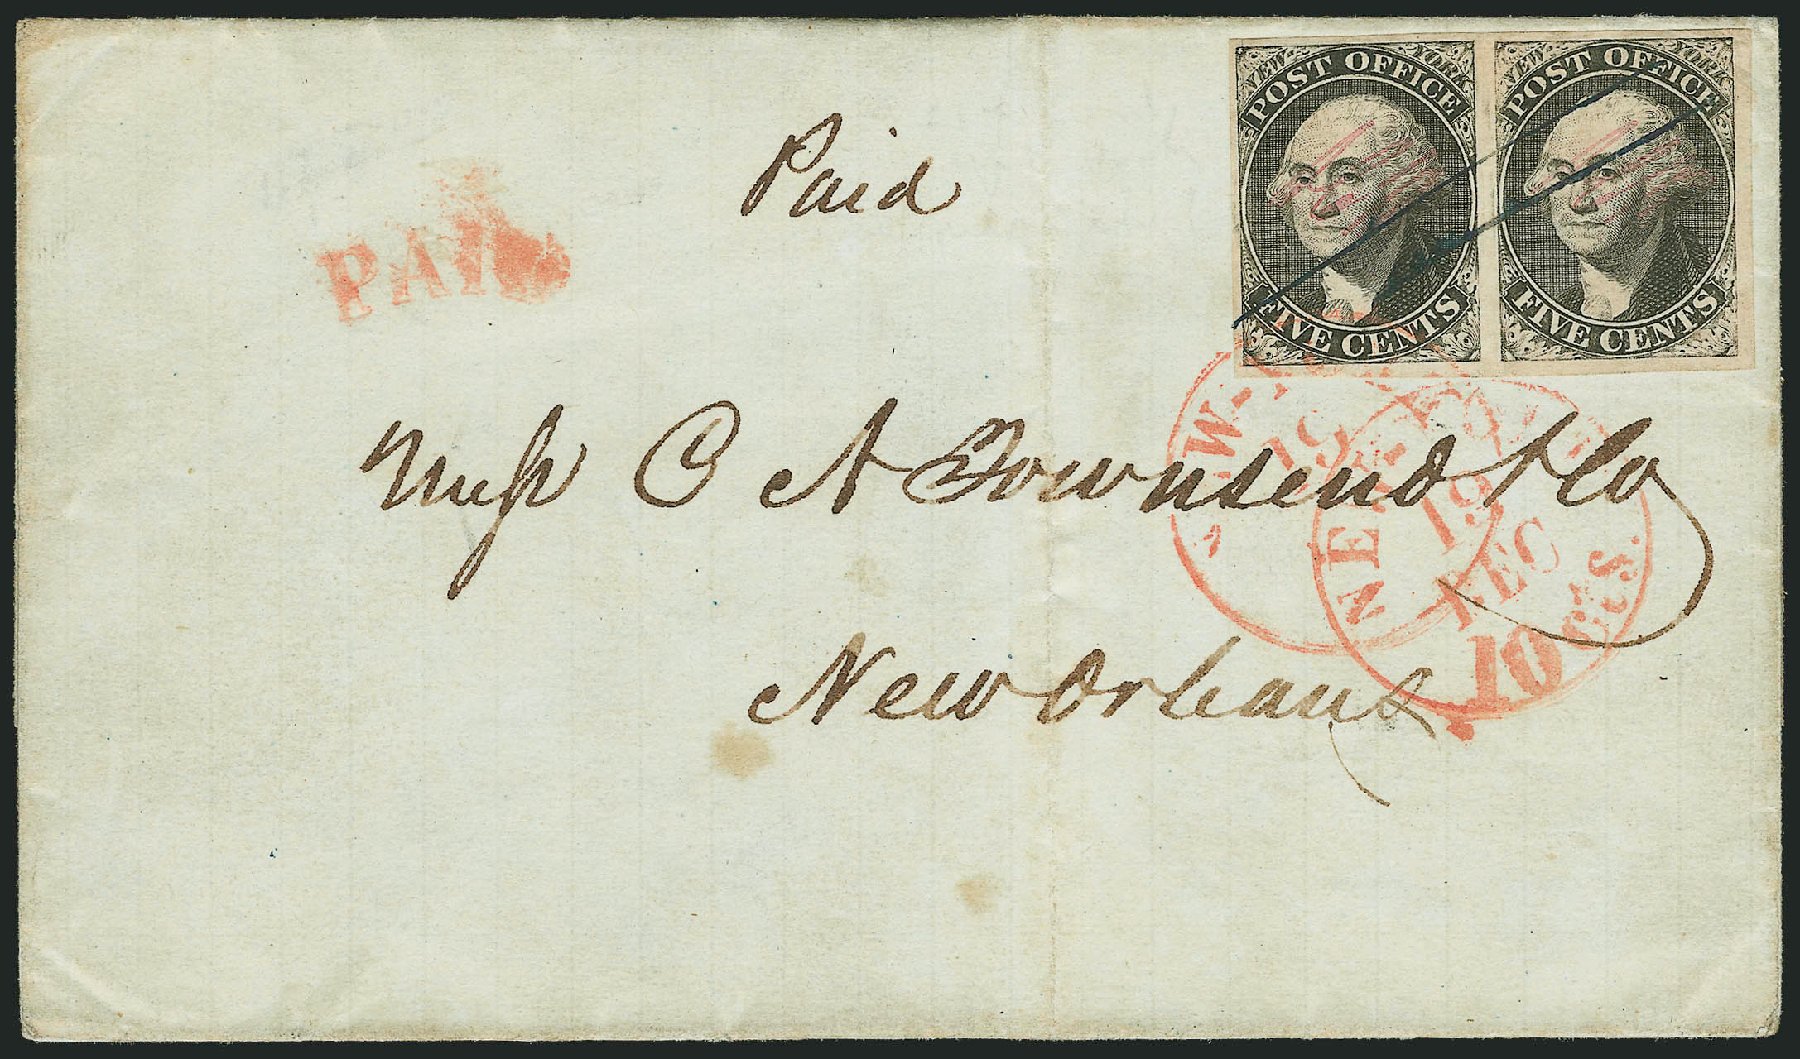 NEW YORK
POST OFFICE
FIVE CENTS
NEW YORK
POST OFFICE
FIVE CENTS
Paid
PAID
Messrs C A Townsend & Co
New Orleans
NEW-YORK
19
NEW-YORK
19
DEC
10 cts.